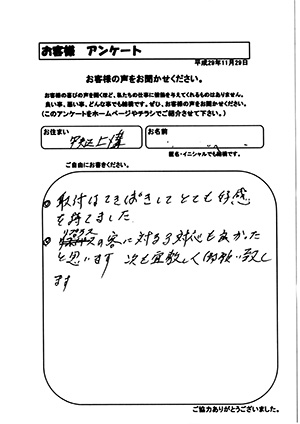 お客様　アンケート
平成29年11月29日
お客様の声をお聞かせください。
お客様の喜びの声を聞くほど、私たちの仕事に情熱を与えてくれるものはありません。
良い事、悪い事、どんな事でも結構です。ぜひ、お客様の声をお聞かせください。
(このアンケートをホームページやチラシでご紹介させて下さい。)
お住まい
お名前
中央区上溝
匿名・イニシャルでも結構です。
ご自由にお書きください。
◎ 取付はてきぱきしてとても好感
を持てました
◎ の客に対する対応も良かった
と思います 次も宜敷しく御願い致し
ます
ご協力ありがとうございました。